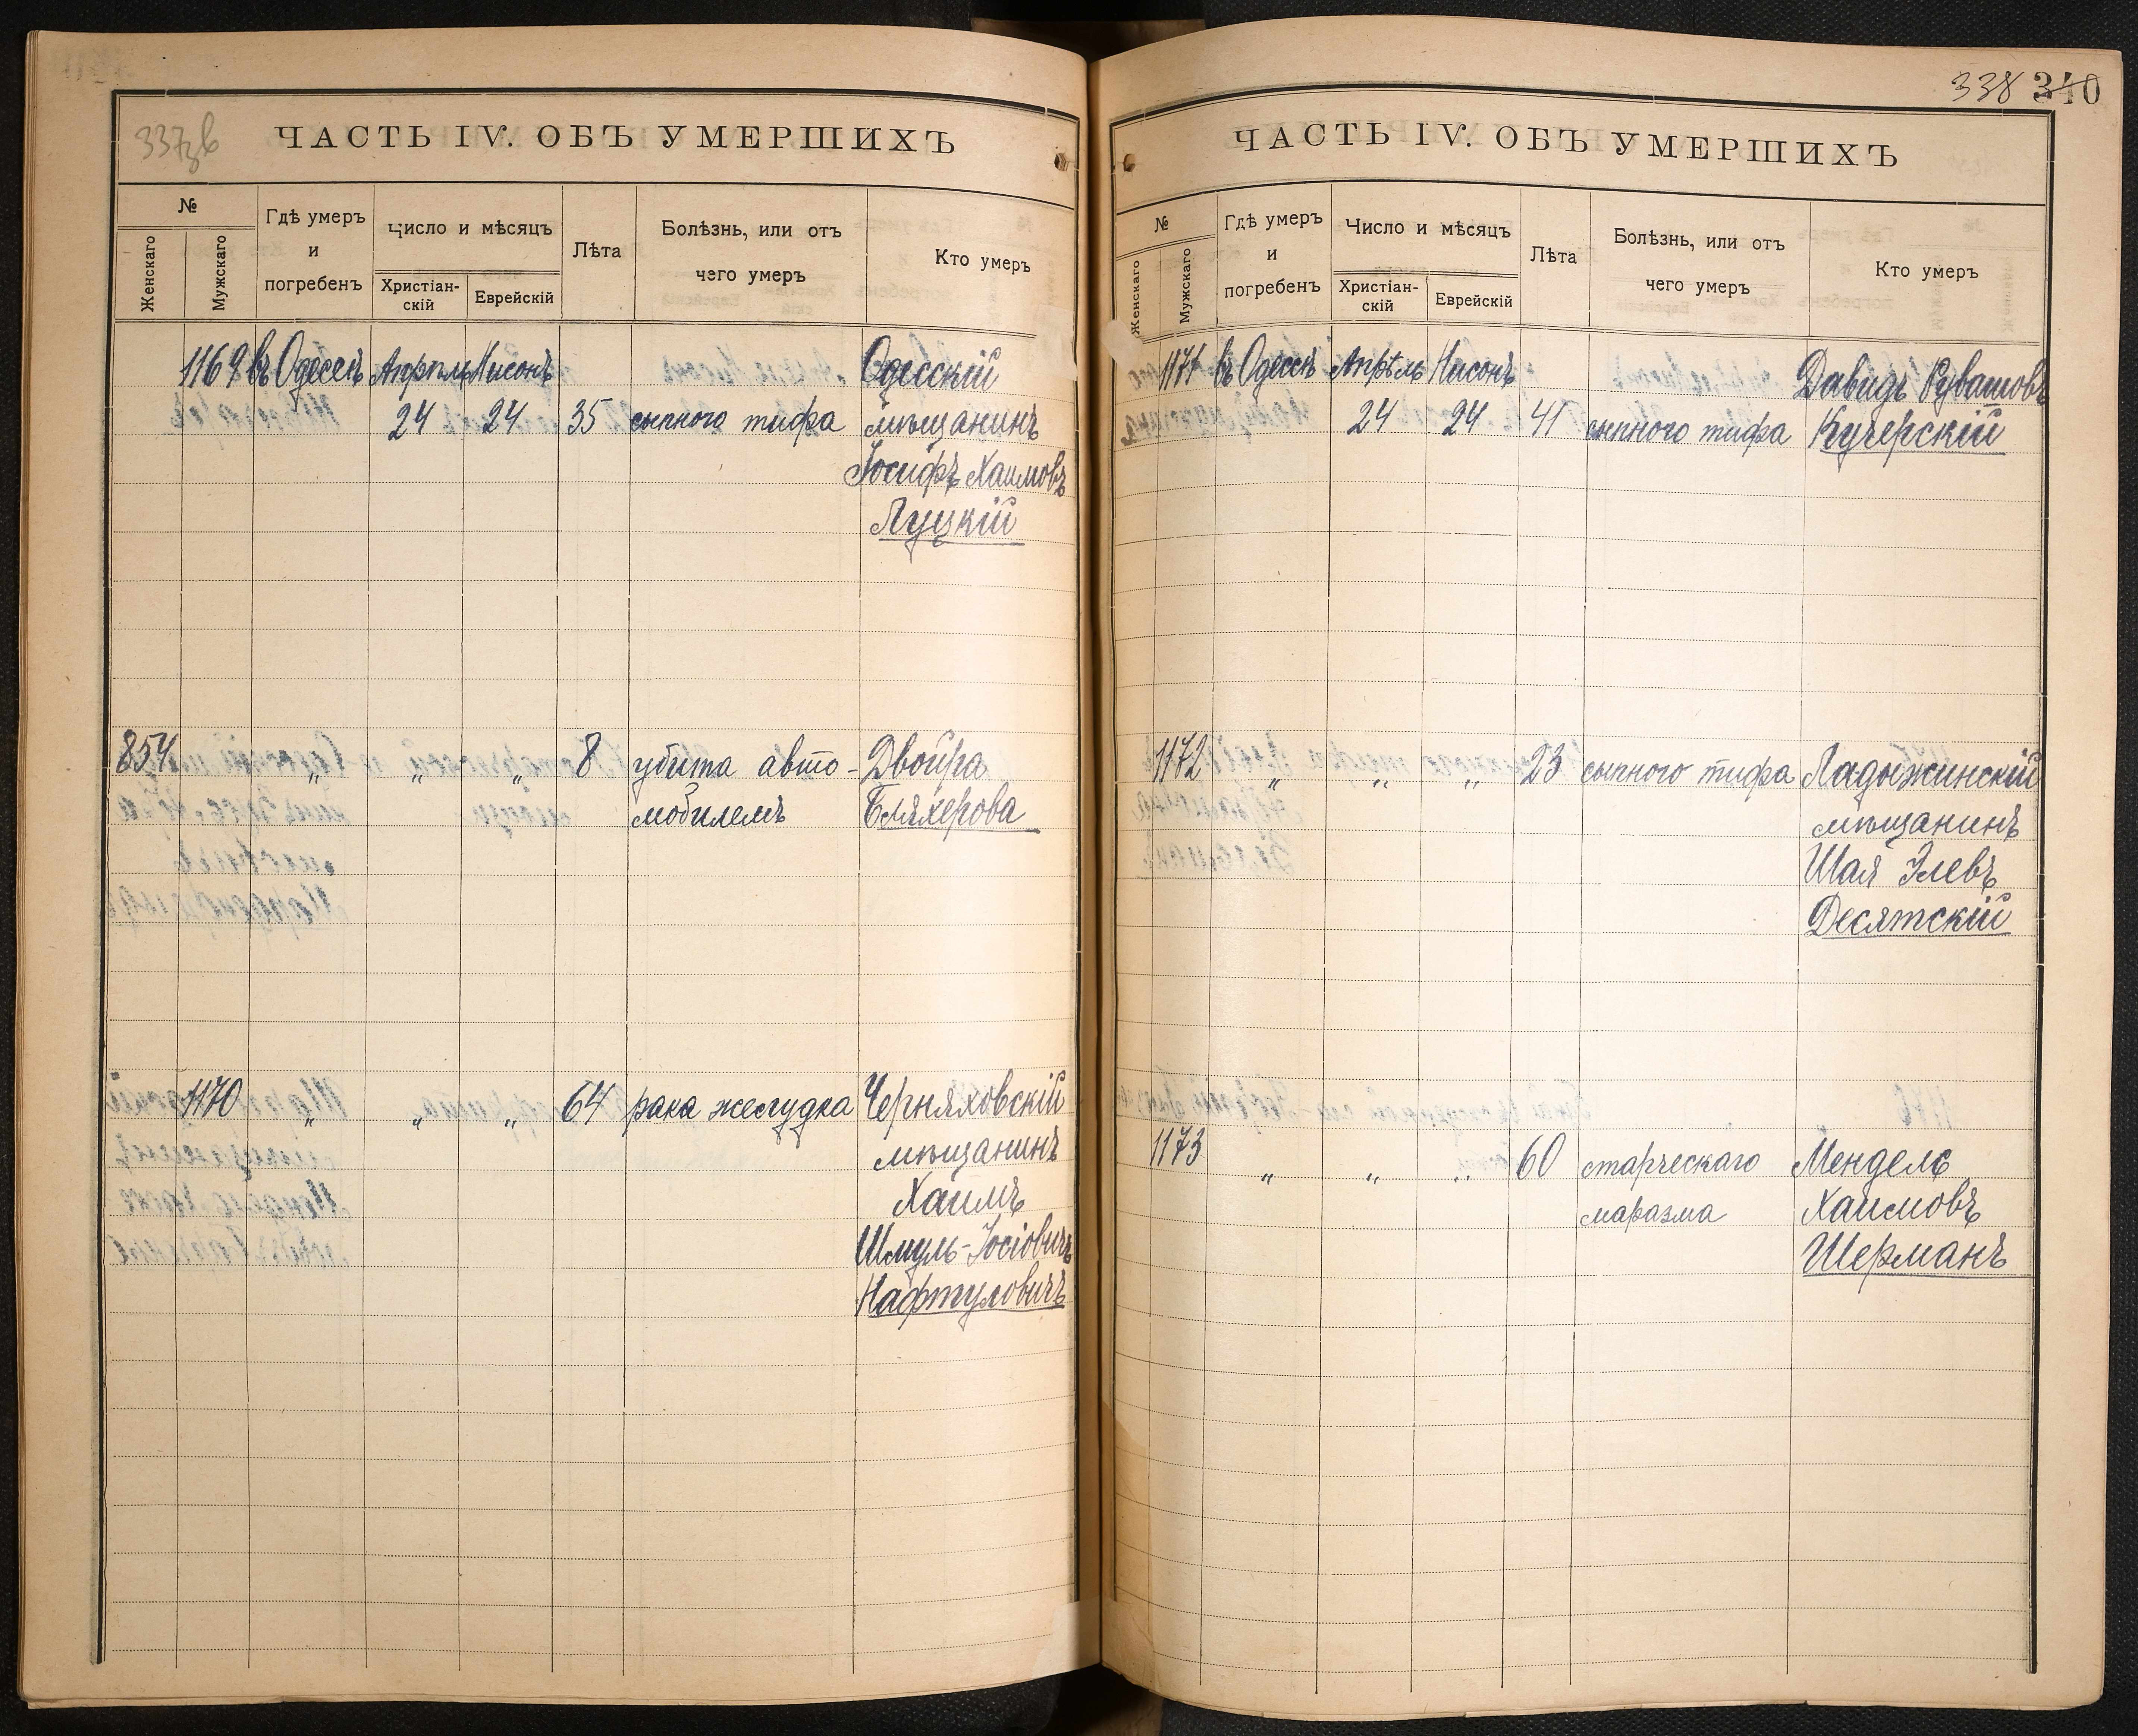 337зв
ЧАСТЬ IV. ОБЪ УМЕРШИХЪ
№
Женскаго
Мужскаго
Гдѣ умеръ
и
погребенъ
Число и мѣсяцъ
Христіан-
скій
Еврейскій
Лѣта
Болѣзнь, или отъ
чего умеръ
Кто умеръ
1169 въ Одессѣ Апрѣль Нисонъ Одесскій
24 24 35 сыпного тифа мѣщанинъ
Іосифъ Хаимовъ
Луцкій
854 „ „ „ 8 убита авто- Двойра
мобилемъ Бляхерова
1170 „ „ „ 64 рака желудка Черняховскій
мѣщанинъ
Хаимъ
Шмуль-Іосіовичъ
Нафтуловичъ
338 340
ЧАСТЬ IV. ОБЪ УМЕРШИХЪ
№
Женскаго
Мужскаго
Гдѣ умеръ
и
погребенъ
Число и мѣсяцъ
Христіан-
скій
Еврейскій
Лѣта
Болѣзнь, или отъ
чего умеръ
Кто умеръ
1171 въ Одессѣ Апрѣль Нисонъ Давидъ Рувановъ
24 24 41 сыпного тифа Кучерскій
1172 „ „ „ 23 сыпного тифа Ладыжинскій
мѣщанинъ
Шая Элевъ
Десятскій
1173 „ „ „ 60 старческаго Мендель
маразма Хаимовъ
Шерманъ